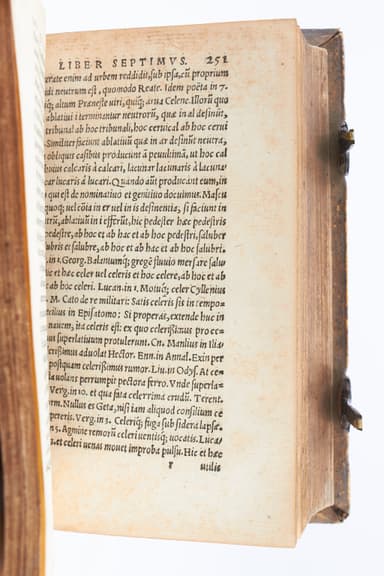 LIBER SEPTIMVS. 251
erate enim ad urbem reddidit, sub ipsa, cū proprium
di neutrum est, quomodo Reate. Idem poëta in 7.
iq; altum Præneste uiri, quiq; arua Celene. Illorū quo
ablatiui i terminantur neutrorū, quæ in al desinūt,
tribunal ab hoc tribunali, hoc ceruical ab hoc cerui
Similiter faciunt ablatiuū quæ in ar desinūt neutra,
obliquis casibus producunt a penultimā, ut hoc cal
calcaris à calcari, lacunar lacunaris à lacuna
car lucaris à lucari. Quando aūt producant eum, in
qui est de nominatiuo et genitiuo docuimus. Mascu
quoq; uel eōia in er uel in is desinentia, si faciunt in
trū, ablatiuū in i efferūt, hic pedester hæc pedestris
pedestre, ab hoc et ab hac et ab hoc pedestri, saluber
lubris et salubre, ab hoc et ab hac et ab hoc salubri.
in 1. Georg. Balantumq; gregē fluuio mersare salu
hic et hæc celer uel celeris et hoc celere, ab hoc et ab
et ab hoc celeri. Lucan. in 1. Motuq; celer Cyllenius
. M. Cato de re militari: Satis celeris sis in tempo
in Epistomo: Si properas, extende huc in
nauem, ita celeris est: ex quo celerissimus pro ce
us superlatiuum protulerunt. Cn. Manlius in Ilia
errissimus aduolat Hector. Enn. in Annal. Exin per
postquam celerissimus rumor. Liu. in Odys. At ce
ta uolans perrumpit pectora ferro. Vnde superla
Verg. in 10. et qua fata celerrima crudū. Terent.
rm. Nullus es Geta, nisi iam aliquod consilium ce
pereris. Verg. in 3. Celeriq; fuga sub sidera lapsæ.
n 5. Agmine remorū celeri uentisq; uocatis. Luca
et celeri uenas mouet improba pulsu. Hic et hæc
r utilis